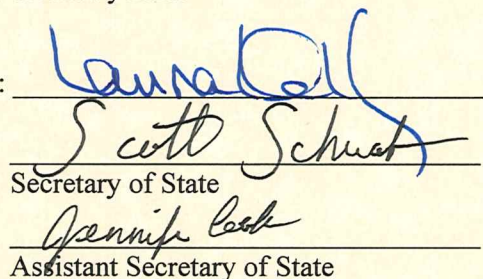 : Laura Kelly
Scott Schwab
Secretary of State
Jennifer Cook
Assistant Secretary of State